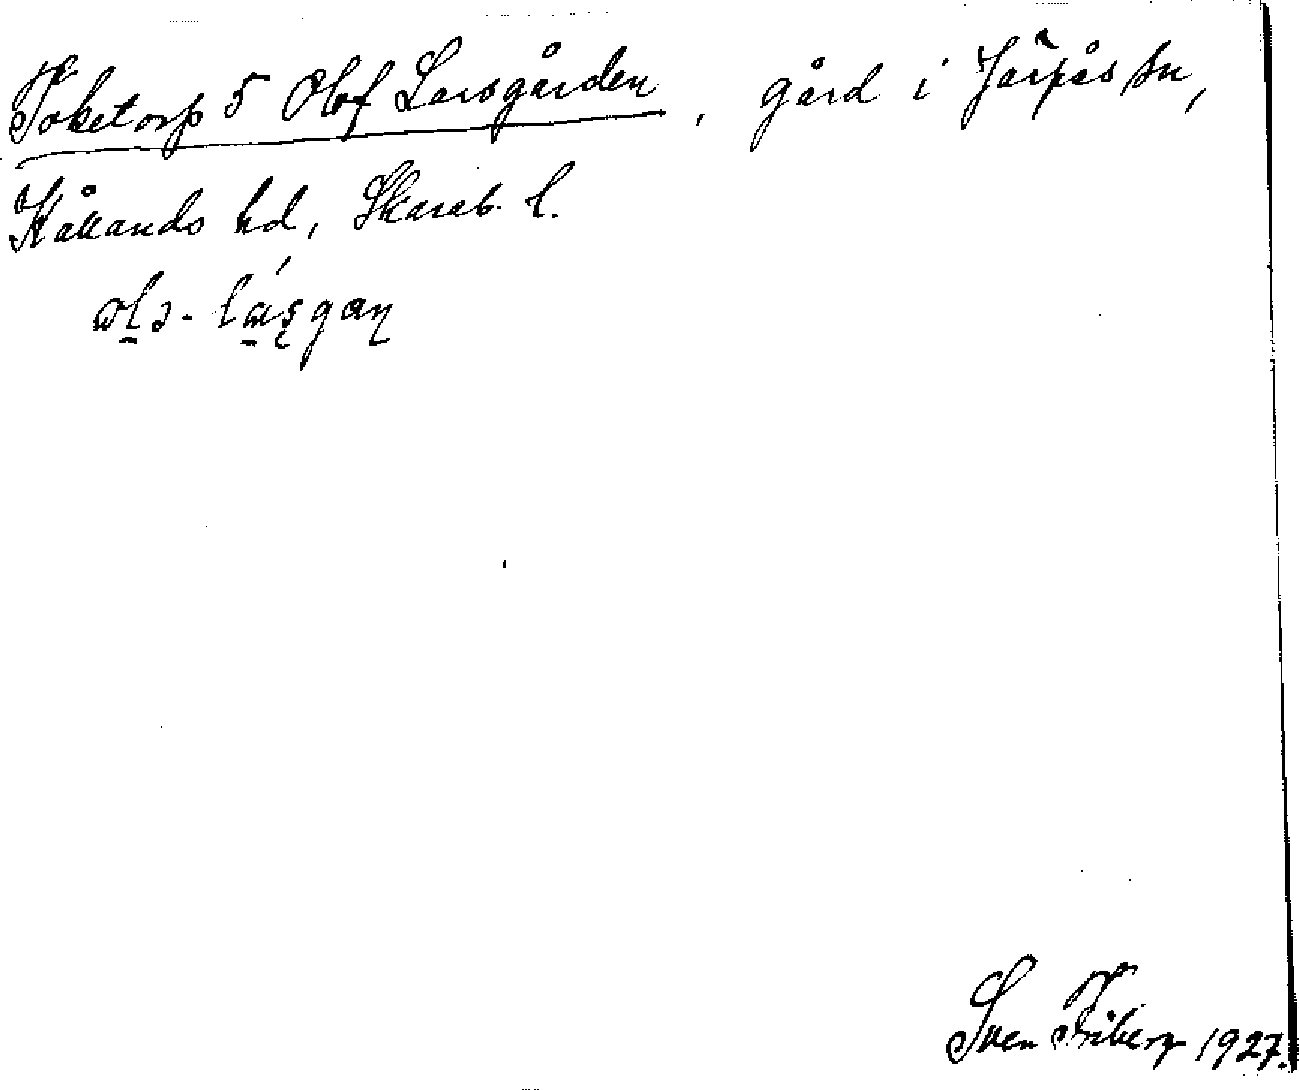 Toketorp 5 Olof Larsgården, gård i Järpås sn,
Kållands hd, Skarab. l.
Sven Friberg 1927.